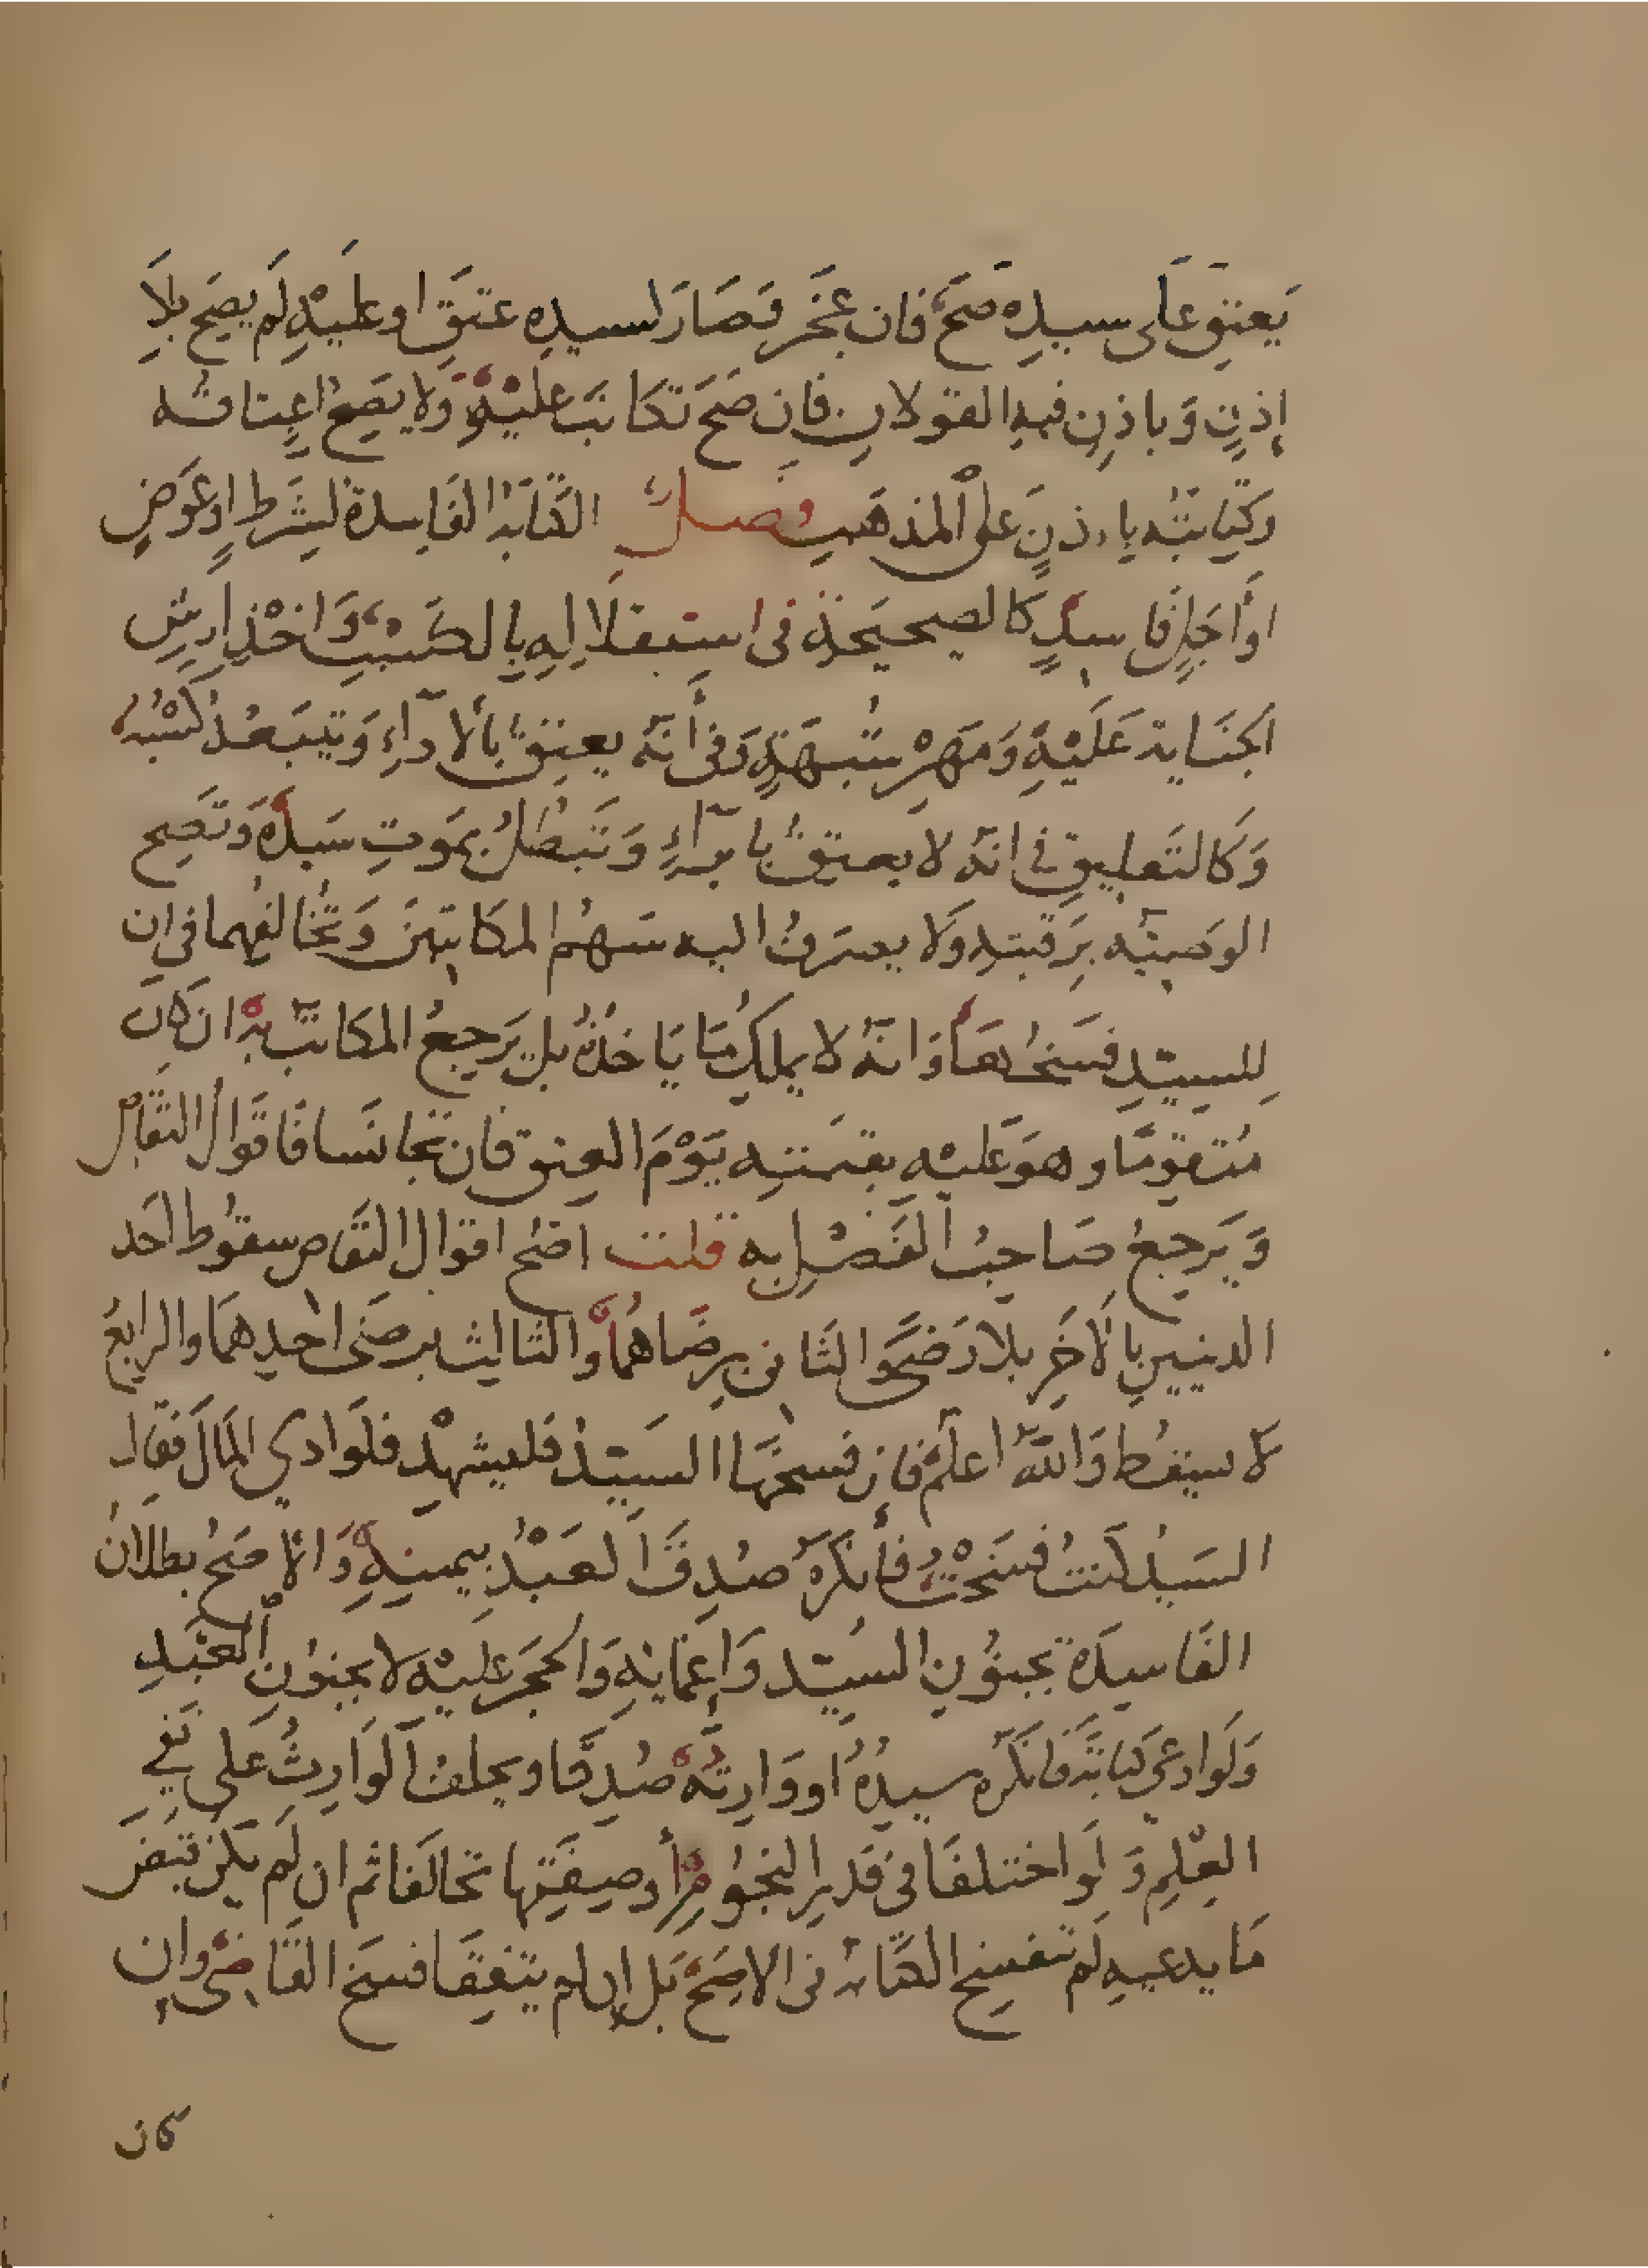 يَعتِق عَلى سيدِه صَحَّ فان عجَز فصَارَ لسيدِه عتَقَ او عليْهِ لَم يصِح بلاَ
إذنٍ وَباذنِ فيهِ القولانِ فان صَحَّ تكاتبَ عليْهِ وَلا يصِحُ اعِتاقُه
وَكِتابتُه باذنٍ عَلى المذهَب فصلٌ الكتابَةُ الفَاسدةُ لشرطٍ اوعَوَضٍ
اوأجَلٍ فاسدٍ كالصحيحَة في استِقلالِهِ بالكسْبِ وَاخْذِ ارشِ
الجنَاية عَليْهِ وَمَهرِ شُبهَةٍ وَفي أنّه يعتِق بالادَآءِ وَيتبَعهُ كسْبُه
وَكالتَعليقِ في انّه لا يعتِقُ بابرآءٍ وَتَبطُلُ بمَوتِ سَيدِه وَتصِح
الوَصيّه برَقبتهِ وَلا يصرَفُ اليه سَهمُ المكاتبينَ وَتُخالفُهما في ان
للسيّدِ فسَخُهَا وَانّه لا يملِكُ مَا يَاخذُهُ بل يَرجِعُ المكاتَبُ به ان كانَ
مُتقوّمًا وهوَ عَليْه بقيمَتِه يَوْمَ العِتق فان تجانَسا فَاقوالُ التقَاصِّ
وَيَرجعُ صَاحِبُ الفَضْلِ به قلت اصَحُ اقوال التقَاص سقوُط احَد
الدينيين بالاخَرِ بلا رَضىً وَالثَاني برضَاهُما وَالثالِث برضَى احَدِهمَا وَالرابعُ
لا يسقُط وَاللهُ اعلَم فان فسخَهَا السَيّدُ فليشهِدْ فلَوادي المَالَ فقال
السَيدُ كنتُ فسَخْتُ فأنكَرَه صُدِقَ العَبْدُ بيمينِهِ وَالاصَحُ بطلانُ
الفَاسِدَة بجنوُنِ السيّد وَإغمائهِ وَالحجَر عَليْه لا بجنوُنِ العَبْدِ
وَلَوادعَى كتابَةً فانكَرَه سيدُهُ اووَارِثُه صُدِقا ويحلفُ الوَارِثُ عَلى نَفي
العِلمِ وَلَو اختلفَا في قَدرِ النجُومِ أوصِفَتِها تحالَفا ثم ان لَم يكن قبَضَ
مَا يدعيهِ لَم تنفسِخ الكتابة في الاصَحِّ بَل ان لم يتفِقَا فسَخَ القَاضِي وَإن
كان